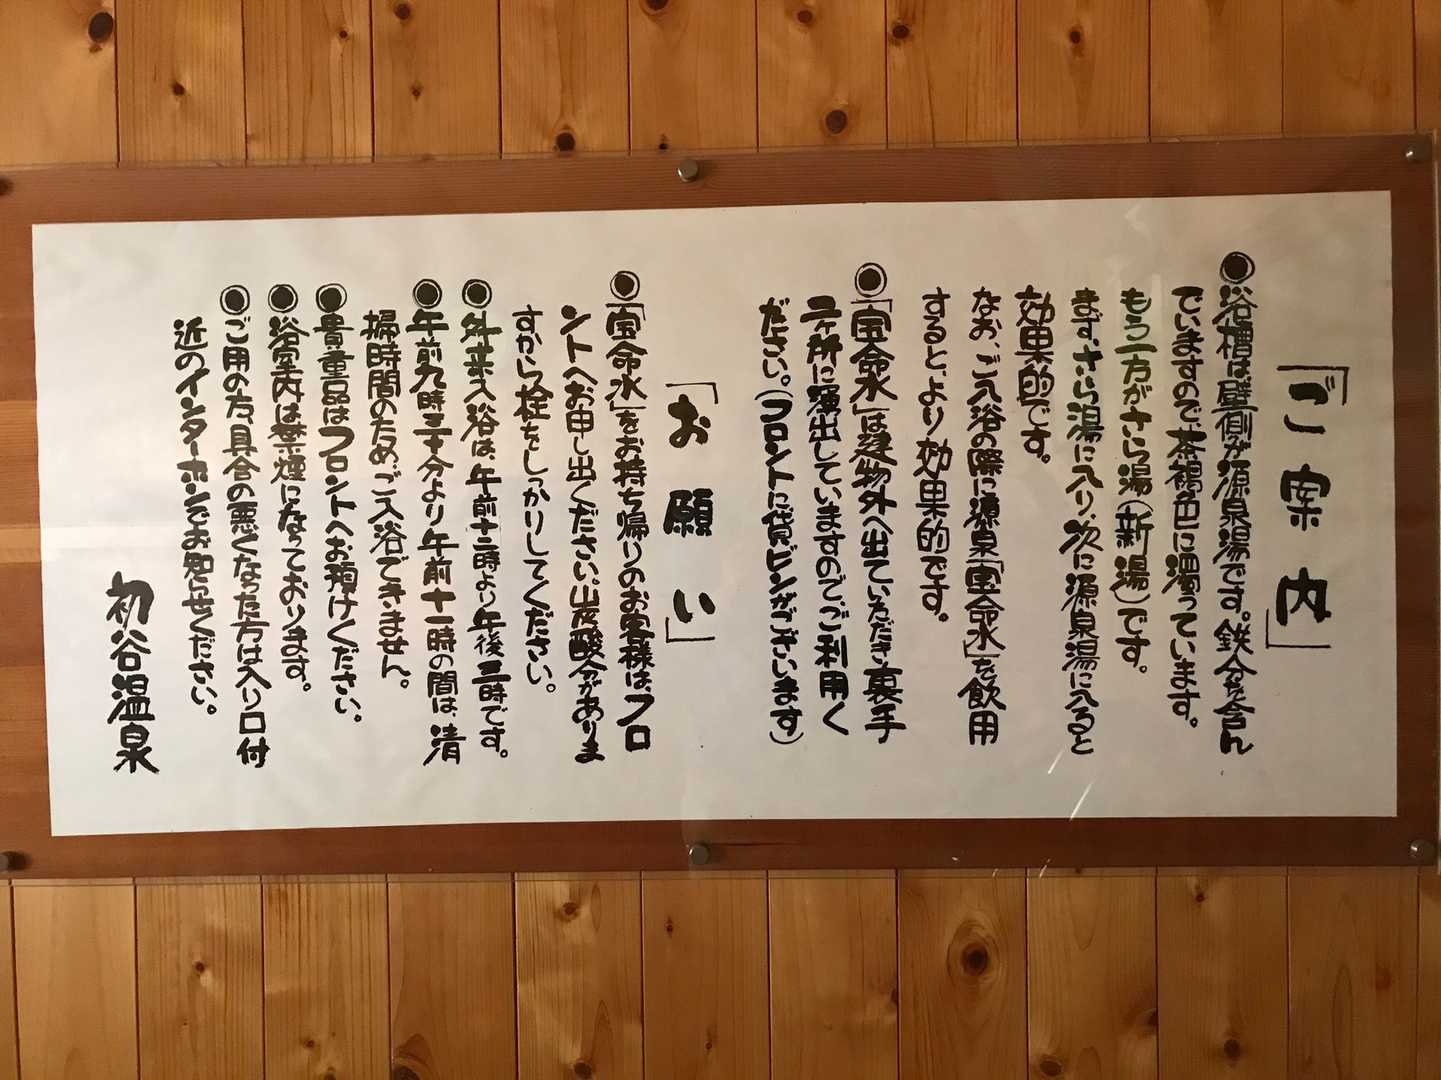 「ご案内」
◉浴槽は壁側が源泉湯です。鉄分を含ん
でいますので茶褐色に濁っています。
もう一方がさら湯(新湯)です。
まず、さら湯に入り、次に源泉湯に入ると
効果的です。
なお、ご入浴の際に源泉「宝命水」を飲用
すると、より効果的です。
◉「宝命水」は建物外へ出ていただき、裏手
二ヶ所に湧出していますので、ご利用く
ださい。(フロントに貸ビンがございます)
「お願い」
◉「宝命水」をお持ち帰りのお客様は、フロ
ントへお申し出ください。炭酸分がありま
すから栓をしっかりしてください。
◉外来入浴は、午前十一時より午後三時です。
◉午前九時三十分より午前十一時の間は、清
掃時間のため、ご入浴できません。
◉貴重品はフロントへお預けください。
◉浴室内は禁煙になっております。
◉ご用の方、具合の悪くなった方は入り口付
近のインターホンでお知らせください。
初谷温泉